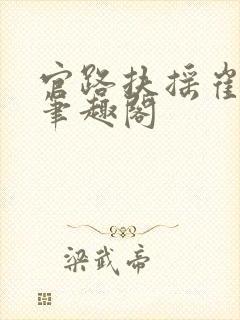 官路扶摇崔
笔趣阁
梁武帝